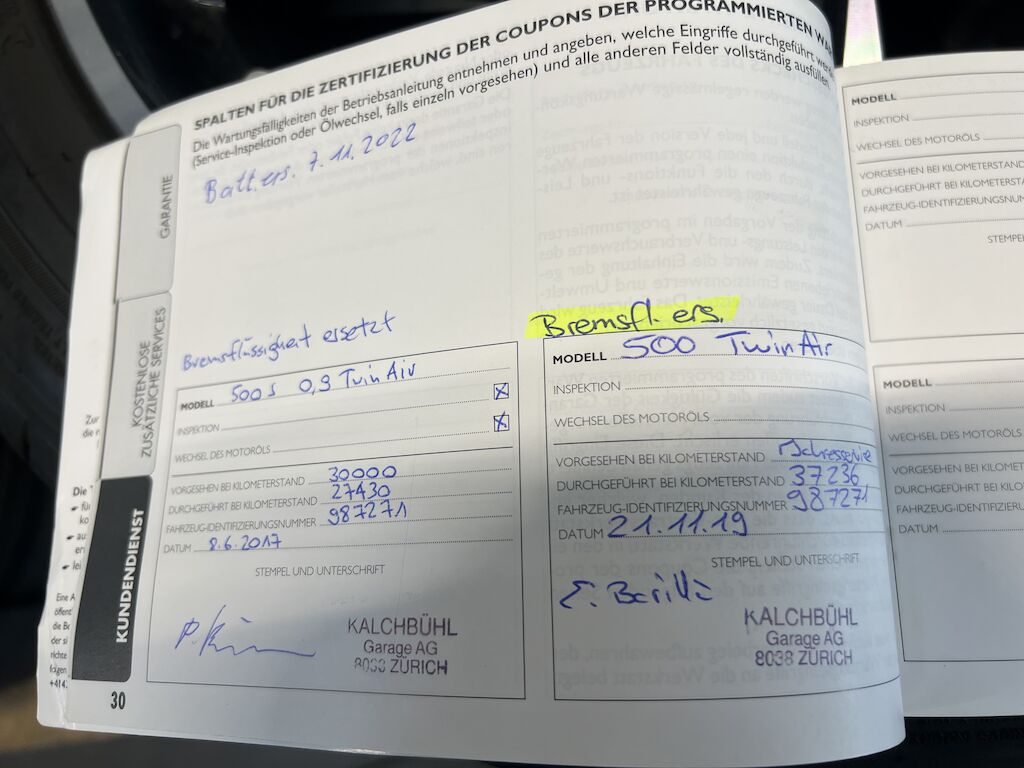 SPALTEN FÜR DIE ZERTIFIZIERUNG DER COUPONS DER PROGRAMMIERTEN
Die Wartungsfälligkeiten der Betriebsanleitung entnehmen und angeben, welche Eingriffe durchgeführt
(Service-Inspektion oder Ölwechsel, falls einzeln vorgesehen) und alle anderen Felder vollständig ausfüllen
Batt.ers. 7.11.2022
GARANTIE
KOSTENLOSE
ZUSÄTZLICHE SERVICES
KUNDENDIENST
30
Bremsflüssigkeit ersetzt
MODELL 500s 0,9 TwinAir
INSPEKTION
WECHSEL DES MOTORÖLS
VORGESEHEN BEI KILOMETERSTAND 30000
DURCHGEFÜHRT BEI KILOMETERSTAND 27430
FAHRZEUG-IDENTIFIZIERUNGSNUMMER 987271
DATUM 8.6.2017
STEMPEL UND UNTERSCHRIFT
KALCHBÜHL
Garage AG
8038 ZÜRICH
Bremsfl. ers.
MODELL 500 TwinAir
INSPEKTION
WECHSEL DES MOTORÖLS
VORGESEHEN BEI KILOMETERSTAND Jahresservice
DURCHGEFÜHRT BEI KILOMETERSTAND 37236
FAHRZEUG-IDENTIFIZIERUNGSNUMMER 987271
DATUM 21.11.19
STEMPEL UND UNTERSCHRIFT
KALCHBÜHL
Garage AG
8038 ZÜRICH
MODELL
INSPEKTION
WECHSEL DES MOTORÖLS
VORGESEHEN BEI KILOMETERSTAND
DURCHGEFÜHRT BEI
DATUM
MODELL
INSPEKTION
WECHSEL DES MOTORÖLS
VORGESEHEN BEI
DURCHGEFÜHRT BEI
DATUM